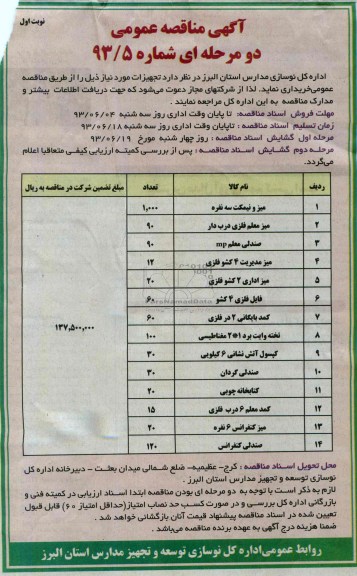 نوبت اول
آگهی مناقصه عمومی
دو مرحله ای شماره ۹۳/۵
اداره کل نوسازی مدارس استان البرز در نظر دارد تجهیزات مورد نیاز ذیل را از طریق مناقصه
عمومی خریداری نماید. لذا از شرکتهای مجاز دعوت می‌شود که جهت دریافت اطلاعات بیشتر و
مدارک مناقصه به این اداره کل مراجعه نمایند.
مهلت فروش اسناد مناقصه: تا پایان وقت اداری روز سه شنبه ۹۳/۰۶/۰۴
زمان تسلیم اسناد مناقصه: تاپایان وقت اداری روز سه شنبه ۹۳/۰۶/۱۸
مرحله اول گشایش اسناد مناقصه: روز چهار شنبه مورخ ۹۳/۰۶/۱۹
مرحله دوم گشایش اسناد مناقصه: پس از بررسی کمیته ارزیابی کیفی متعاقبا اعلام
می‌گردد.
ردیف نام کالا تعداد مبلغ تضمین شرکت در مناقصه به ریال
۱ میز و نیمکت سه نفره ۱,۰۰۰
۲ میز معلم فلزی درب دار ۹۰
۳ صندلی معلم mp ۹۰
۴ میز مدیریت ۴ کشو فلزی ۱۲
۵ میز اداری ۲ کشو فلزی ۲۰
۶ فایل فلزی ۴ کشو ۶۰
۷ کمد بایگانی ۲ در فلزی ۶۰
۸ تخته وایت برد ۱*۲ مغناطیسی ۱۰۰
۹ کپسول آتش نشانی ۶ کیلویی ۳۰
۱۰ صندلی گردان ۳۰
۱۱ کتابخانه چوبی ۲۰
۱۲ کمد معلم ۶ درب فلزی ۱۵
۱۳ میز کنفرانس ۶ نفره ۲۰
۱۴ صندلی کنفرانس ۱۲۰
۱۳۷,۵۰۰,۰۰۰
محل تحویل اسناد مناقصه: کرج- عظیمیه- ضلع شمالی میدان بعثت - دبیرخانه اداره کل
نوسازی توسعه و تجهیز مدارس استان البرز.
لازم به ذکر است با توجه به دو مرحله ای بودن مناقصه ابتدا اسناد ارزیابی در کمیته فنی و
بازرگانی اداره کل بررسی و در صورت کسب حد نصاب امتیاز(حداقل امتیاز ۶۰) قابل قبول
تعیین شده در اسناد مناقصه پیشنهاد قیمت آنان بازگشائی خواهد شد.
ضمنا هزینه درج آگهی به عهده برنده مناقصه می‌باشد.
روابط عمومی اداره کل نوسازی توسعه و تجهیز مدارس استان البرز